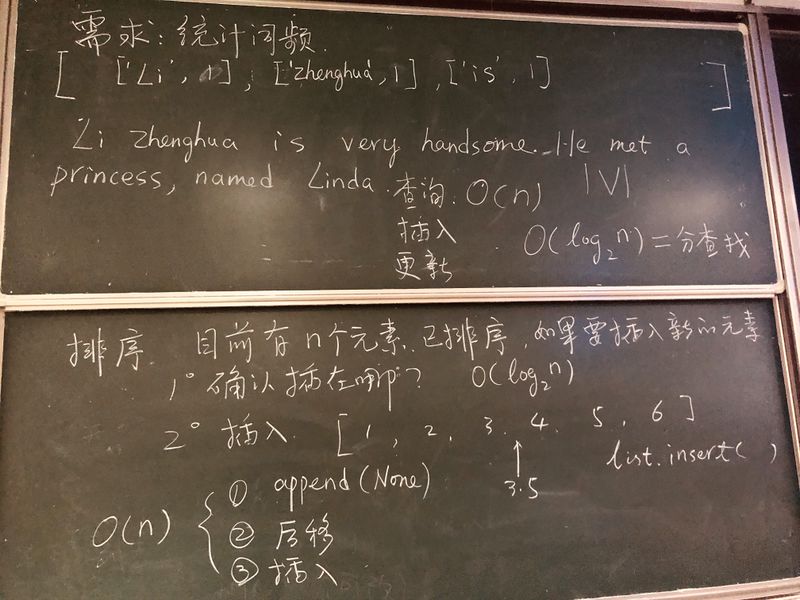 需求：统计词频.
[ ['Li', 1], ['zhenghua', 1], ['is', 1] ]
Li Zhenghua is very handsome. He met a
princess, named Linda. 查询 O(n) |V|
插入 O(log₂n) 二分查找
更新
排序. 目前有n个元素, 已排序, 如果要插入新的元素
1° 确认插在哪? O(log₂n)
2° 插入. [1, 2, 3, 4, 5, 6]
3.5 list.insert( )
① append(None)
O(n) ② 后移
③ 插入